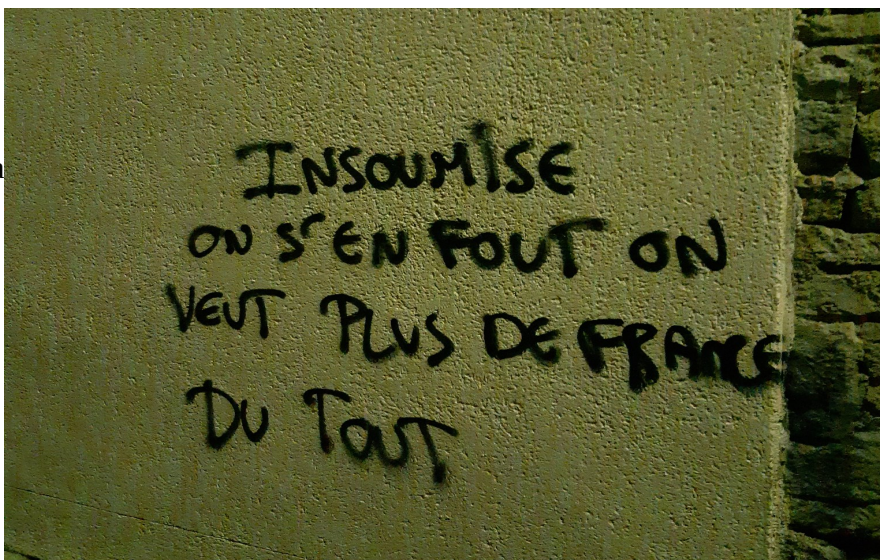 INSOUMISE
ON S'EN FOUT ON
VEUT PLUS DE FRANCE
DU TOUT